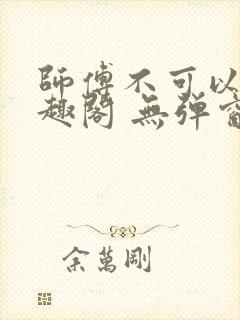 師傅不可以
趣閣 無彈窗
余萬剛